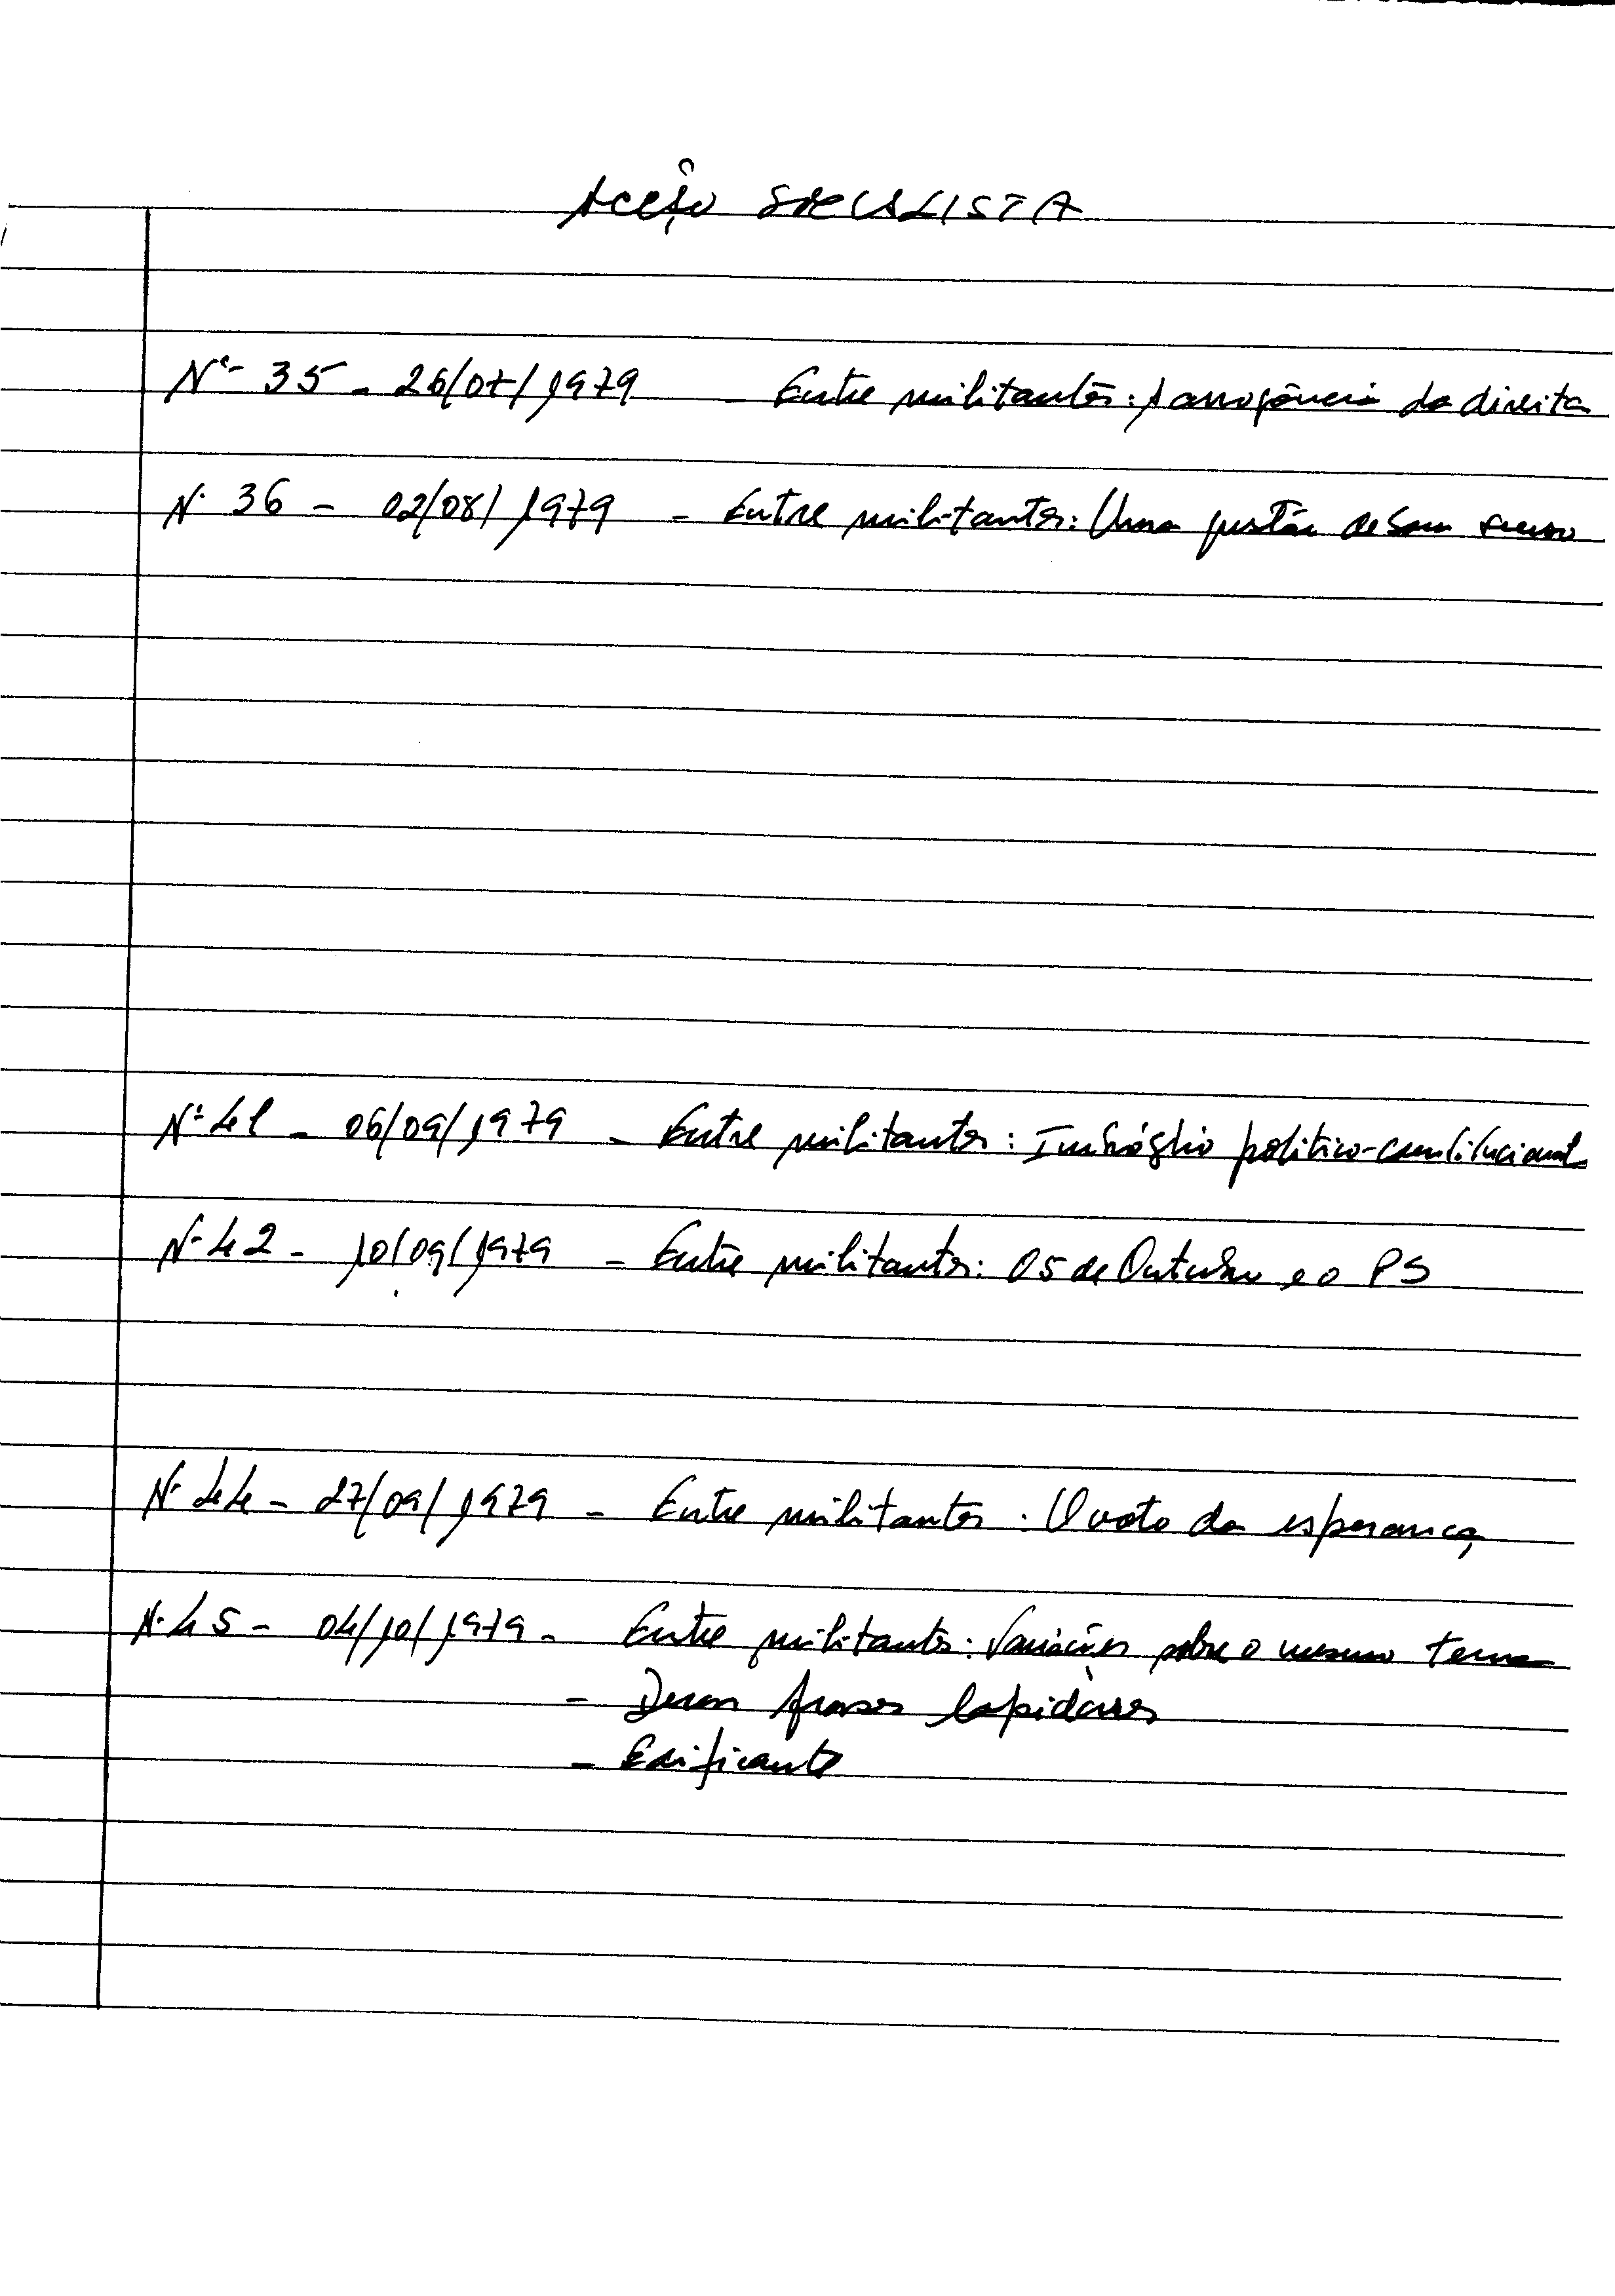 ACÇÃO SOCIALISTA
Nº 35 - 26/07/1979 - Entre militantes: A arrogância da direita
Nº 36 - 02/08/1979 - Entre militantes: Uma questão de bom senso
Nº 41 - 06/09/1979 - Entre militantes: Imbróglio politico-constitucional
Nº 42 - 10/09/1979 - Entre militantes: O 5 de Outubro e o PS
Nº 44 - 27/09/1979 - Entre militantes: O voto da esperança
Nº 45 - 04/10/1979 - Entre militantes: Variações sobre o mesmo tema
- frases lapidares
- Edificante